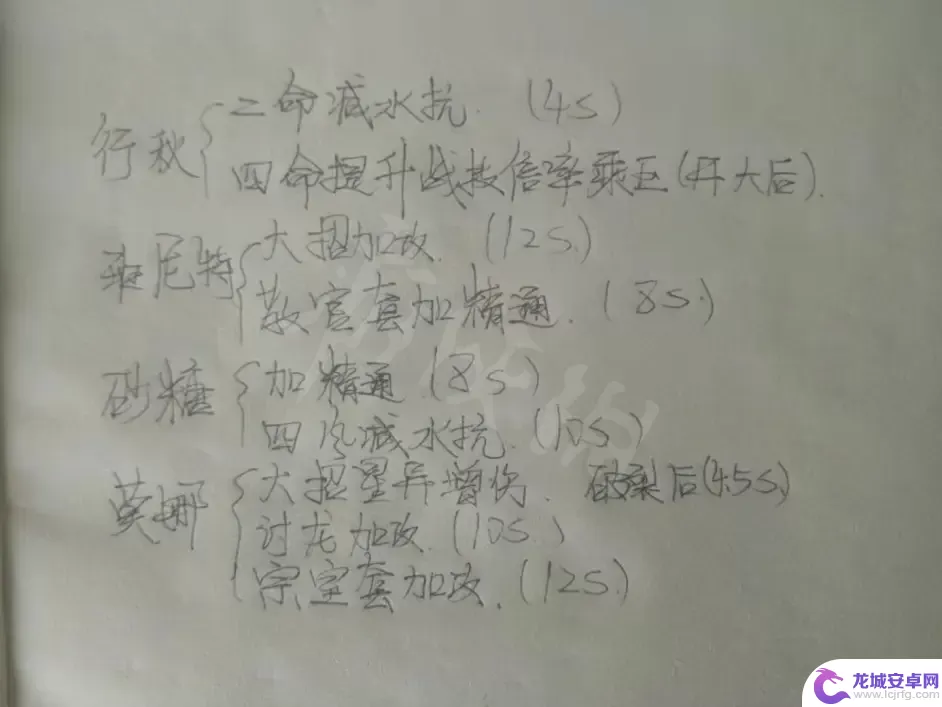 行秋 二命减水抗. (4s)
四命提升战技倍率乘区(开大后).
班尼特 大招加攻. (12s.)
教官套加精通. (8s.)
砂糖 加精通 (8s)
四风减水抗. (10s)
莫娜 大招星异增伤. 破裂后(4.5s.)
讨龙加攻. (10s.)
宗室套加攻. (12s.)
龙城安卓网
www.lcjrfg.com